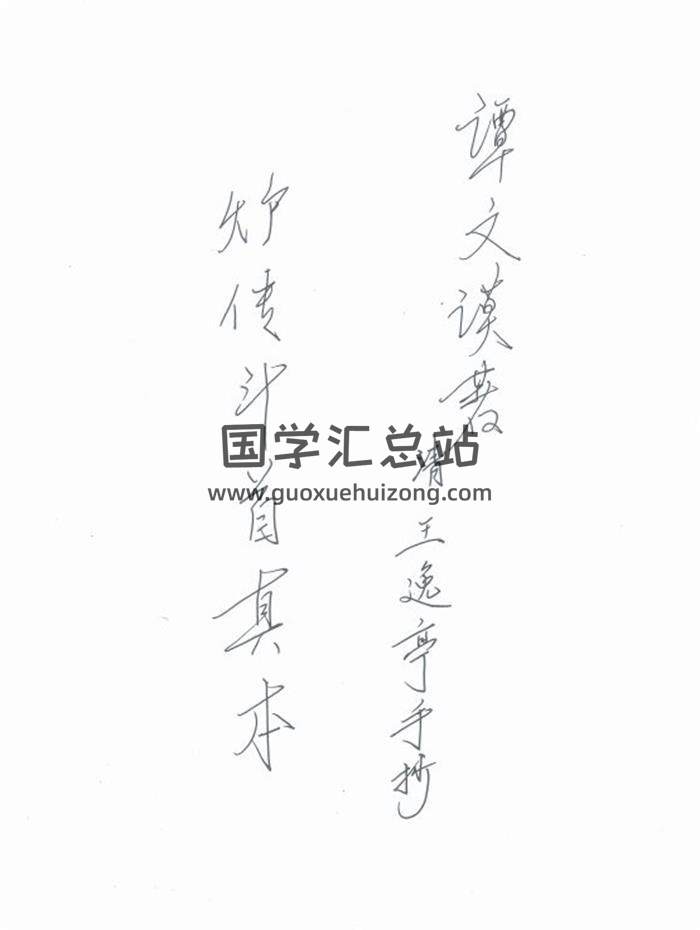 谭文谟
清王逸亭手抄
炉传斗首真本
国学汇总站
www.guoxuehuizong.com